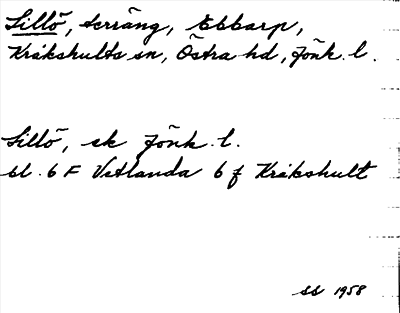 Lillö, terräng, Ebbarp,
Kråkshults sn, Östra hd, Jönk. l.
Lillö, ek Jönk. l.
bl. 6 F Vetlanda 6 f Kråkshult
SS 1958